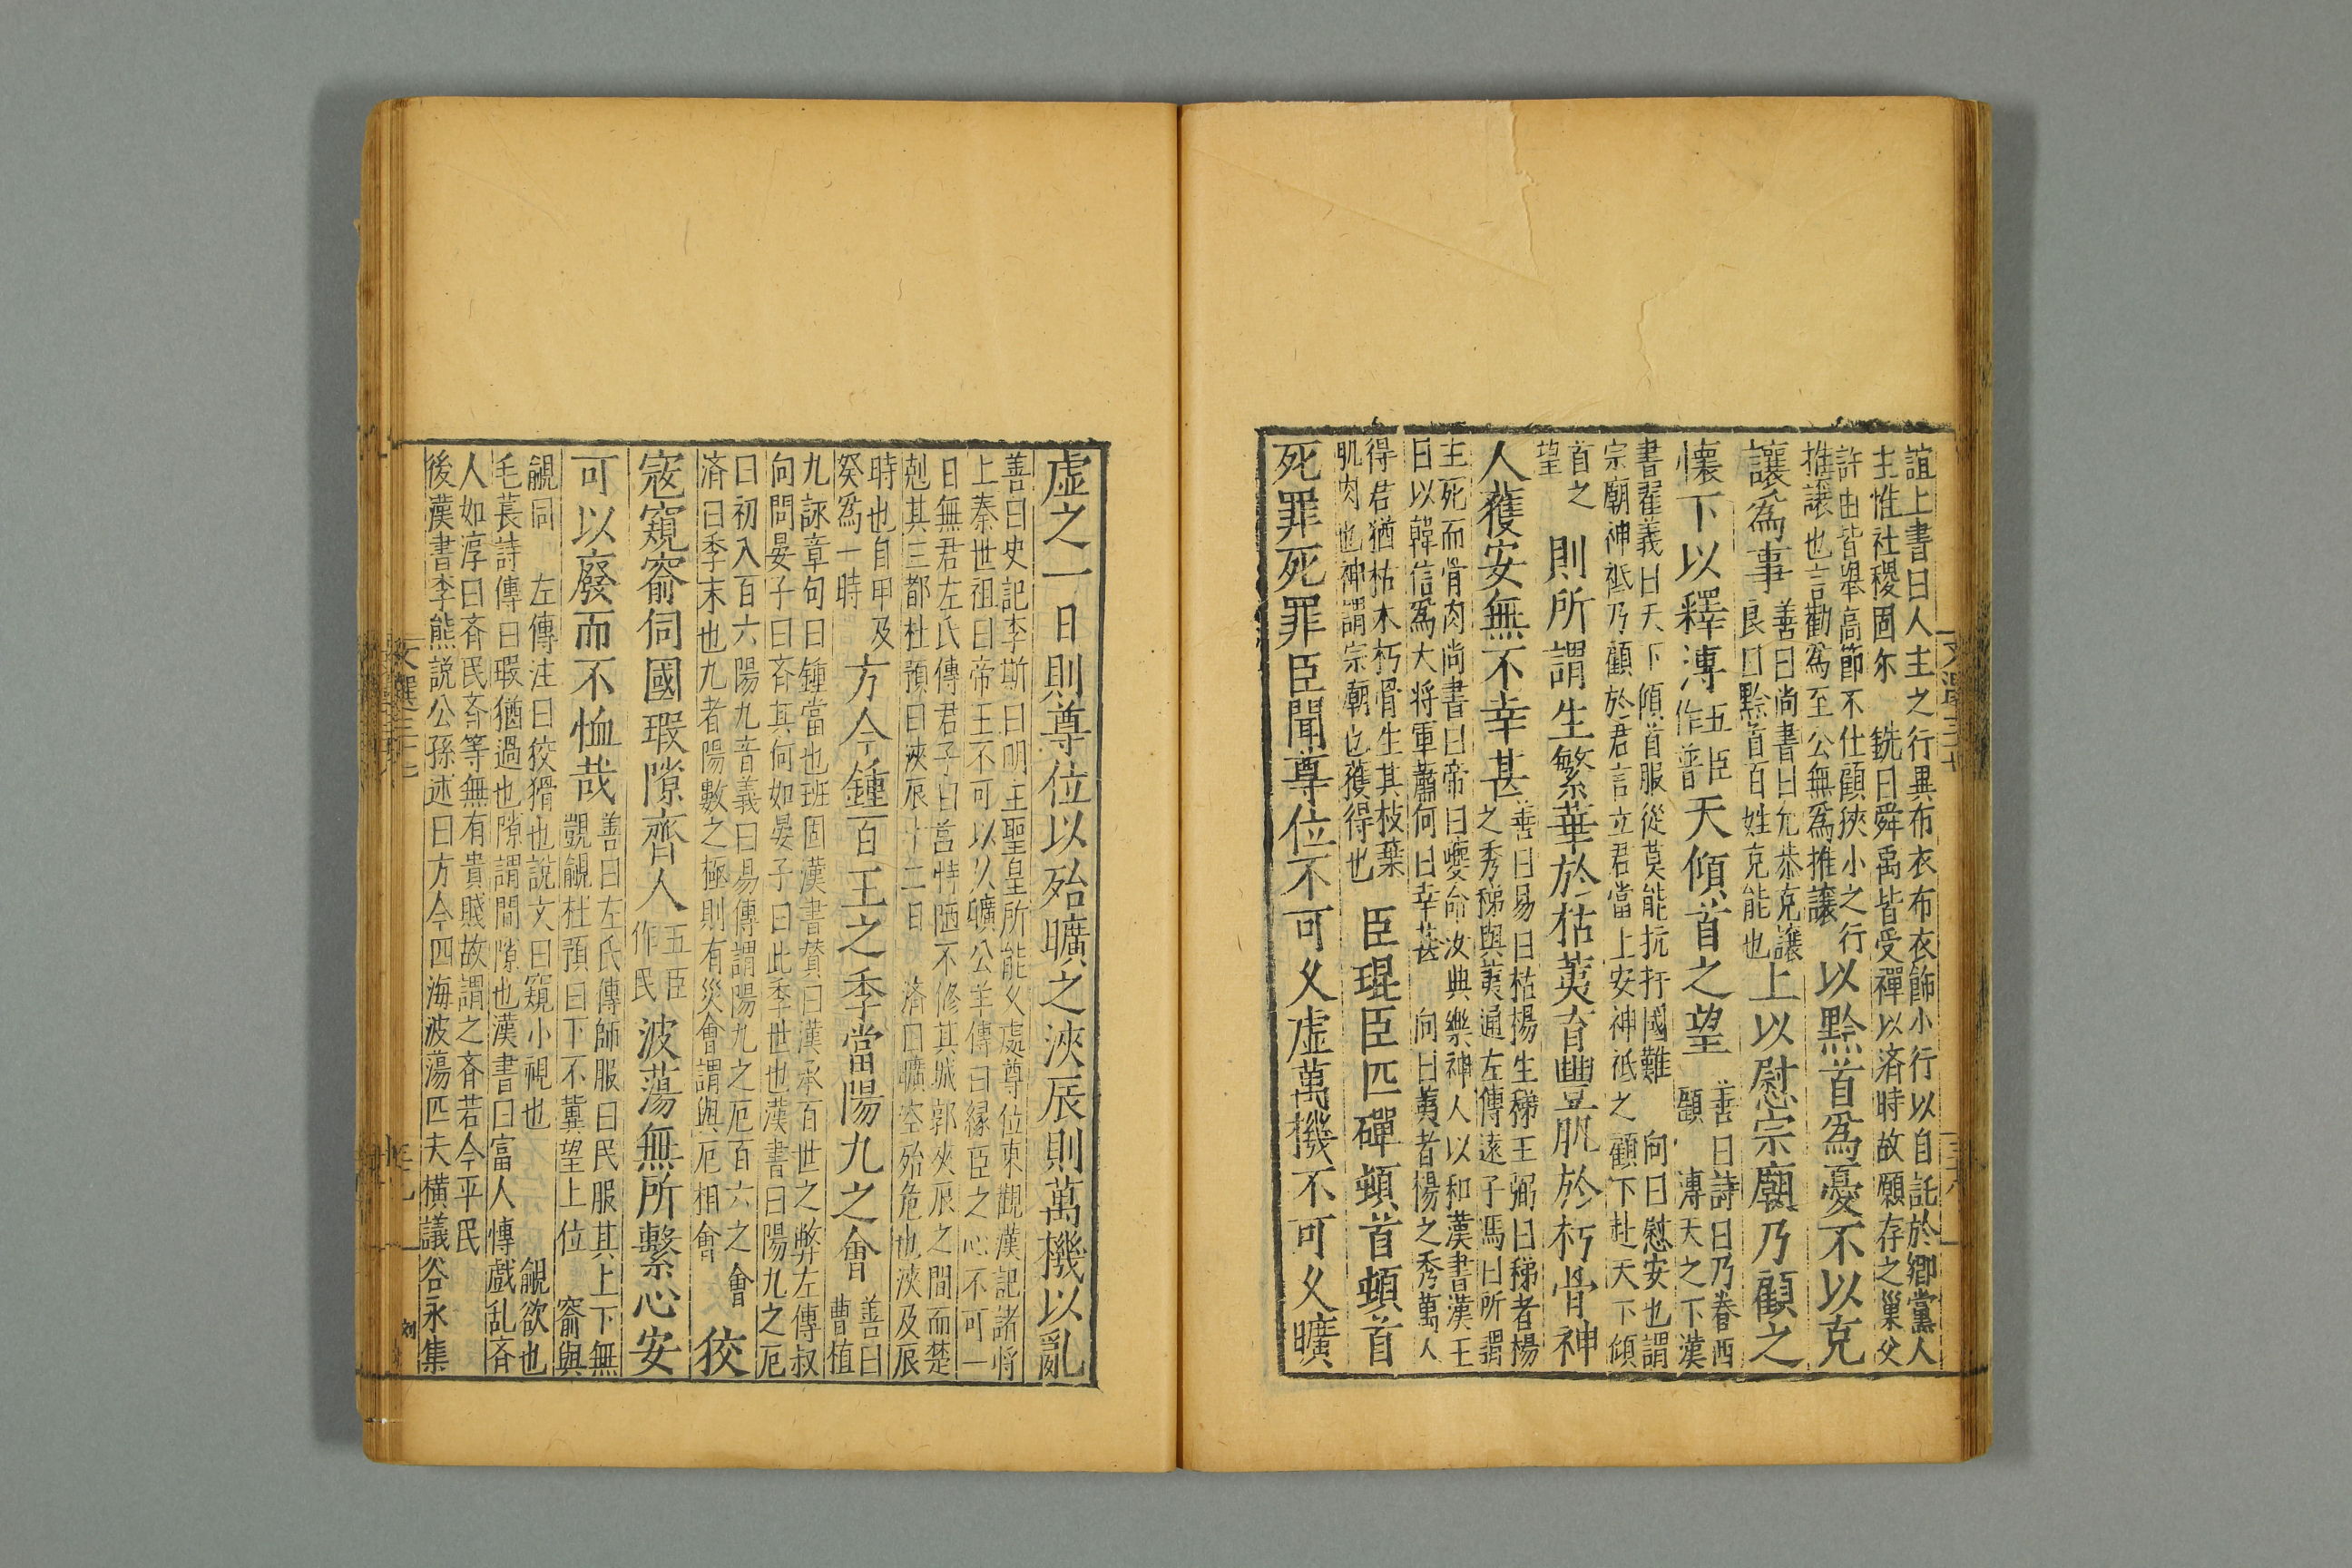 誼上書曰人主之行異布衣布衣飾小行以自託於鄉黨人
主惟社稷固尓 銑曰舜禹皆受禪以済時故願存之巢父
許由皆舉高節不仕顧狹小之行
推讓也言勸爲至公無爲推讓
以黔首爲憂不以克
讓爲事
善曰尚書曰允恭克讓
良曰黔首百姓克能也
上以慰宗廟乃顧之
懷下以釋溥
五臣
作普
天傾首之望
善曰詩曰乃眷西
顧 溥天之下漢
書翟義曰天下傾首服從莫能抗扞國難 向曰慰安也謂
宗廟神祇乃顧於君言立君當上安神祇之顧下赴天下傾
首之
望
則所謂生繁華於枯荑育豐肌於朽骨神
人獲安無不幸甚
善曰易曰枯楊生稊王弼曰稊者楊
之秀稊與荑通左傳遠子馮曰所謂
生死而骨肉尚書曰帝曰夔命汝典樂神人以和漢書漢王
曰以韓信爲大将軍蕭何曰幸甚 向曰荑者楊之秀萬人
得君猶枯木朽骨生其枝葉
肌肉也神謂宗廟也獲得也
臣琨臣匹磾頓首頓首
死罪死罪臣聞尊位不可乆虚萬機不可乆曠
虚之一日則尊位以殆曠之浹辰則萬機以亂
善曰史記李斯曰明主聖皇所能乆處尊位東觀漢記諸将
上奏世祖曰帝王不可以乆曠公羊傳曰縁臣之心不可一
日無君左氏傳君子曰莒恃陋不修其城郭浹辰之間而楚
剋其三都杜預曰浹辰十二日 済曰曠空殆危也浹及辰
時也自甲及
癸爲一時
方今鍾百王之季當陽九之會
善曰
曹植
九詠章句曰鍾當也班固漢書賛曰漢承百世之弊左傳叔
向問晏子曰斉其何如晏子曰此季世也漢書曰陽九之厄
曰初入百六陽九音義曰易傳謂陽九之厄百六之會
済曰季末也九者陽數之極則有災會謂與厄相會
狡
寇窺窬伺國瑕隙齊人
五臣
作民
波蕩無所繫心安
可以廢而不恤哉
善曰左氏傳師服曰民服其上下無
覬覦杜預曰下不冀望上位 窬與
覦同 左傳注曰狡猾也說文曰窺小視也 覦欲也
毛萇詩傳曰瑕猶過也隙謂間隙也漢書曰富人傳戯乱斉
人如淳曰斉民斉等無有貴賎故謂之斉若今平民
後漢書李熊説公孫述曰方今四海波蕩匹夫横議谷永集
文選三十七
刘